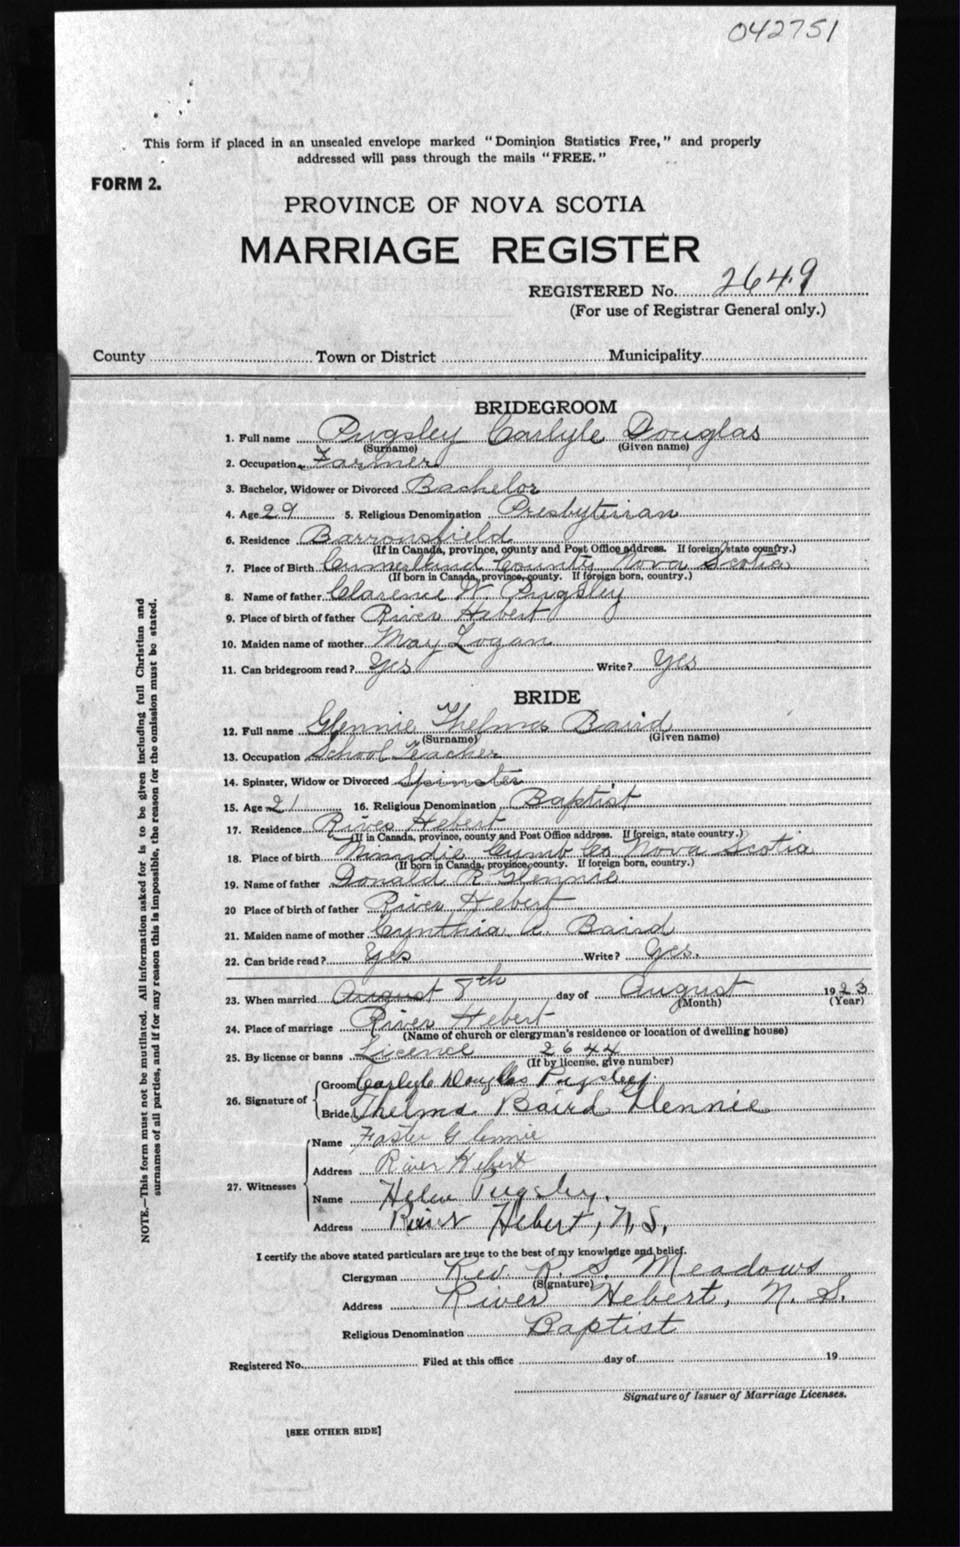 042751
This form if placed in an unsealed envelope marked "Dominion Statistics Free," and properly
addressed will pass through the mails "FREE."
FORM 2.
PROVINCE OF NOVA SCOTIA
MARRIAGE REGISTER
REGISTERED No. 2649
(For use of Registrar General only.)
County Town or District Municipality
BRIDEGROOM
1. Full name Pugsley Carlyle Douglas
(Surname) (Given name)
2. Occupation Farmer
3. Bachelor, Widower or Divorced Bachelor
4. Age 29 5. Religious Denomination Presbyterian
6. Residence Barronsfield
(If in Canada, province, county and Post Office address. If foreign, state country.)
7. Place of Birth Cumberland County Nova Scotia
(If born in Canada, province, county. If foreign born, country.)
8. Name of father Clarence W Pugsley
9. Place of birth of father River Hebert
10. Maiden name of mother May Logan
11. Can bridegroom read? Yes Write? Yes
BRIDE
12. Full name Glennie Thelma Baird
(Surname) (Given name)
13. Occupation School Teacher
14. Spinster, Widow or Divorced Spinster
15. Age 21 16. Religious Denomination Baptist
17. Residence River Hebert
(If in Canada, province, county and Post Office address. If foreign, state country.)
18. Place of birth Minudie Cumb Co Nova Scotia
(If born in Canada, province, county. If foreign born, country.)
19. Name of father Donald R Glennie
20 Place of birth of father River Hebert
21. Maiden name of mother Cynthia A. Baird
22. Can bride read? Yes Write? Yes.
23. When married August 8th day of August 1923
(Month) (Year)
24. Place of marriage River Hebert
(Name of church or clergyman's residence or location of dwelling house)
25. By license or banns Licence 2644
(If by license, give number)
26. Signature of Groom Carlyle Douglas Pugsley.
Bride Thelma Baird Glennie
27. Witnesses Name Foster Glennie
Address River Hebert
Name Helen Pugsley.
Address River Hebert, N.S.
I certify the above stated particulars are true to the best of my knowledge and belief.
Clergyman Rev. R. S. Meadows
(Signature)
Address River Hebert, N. S.
Religious Denomination Baptist
Registered No. Filed at this office day of 19
Signature of Issuer of Marriage Licenses.
[SEE OTHER SIDE]
NOTE.—This form must not be mutilated. All information asked for is to be given including full Christian and
surnames of all parties, and if for any reason this is impossible, the reason for the omission must be stated.